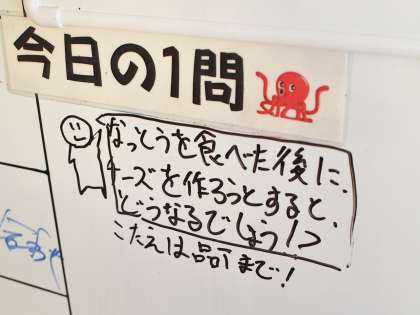 今日の1問
なっとうを食べた後に、
チーズを作ろうとすると、
どうなるでしょうか
こたえは品Tまで!